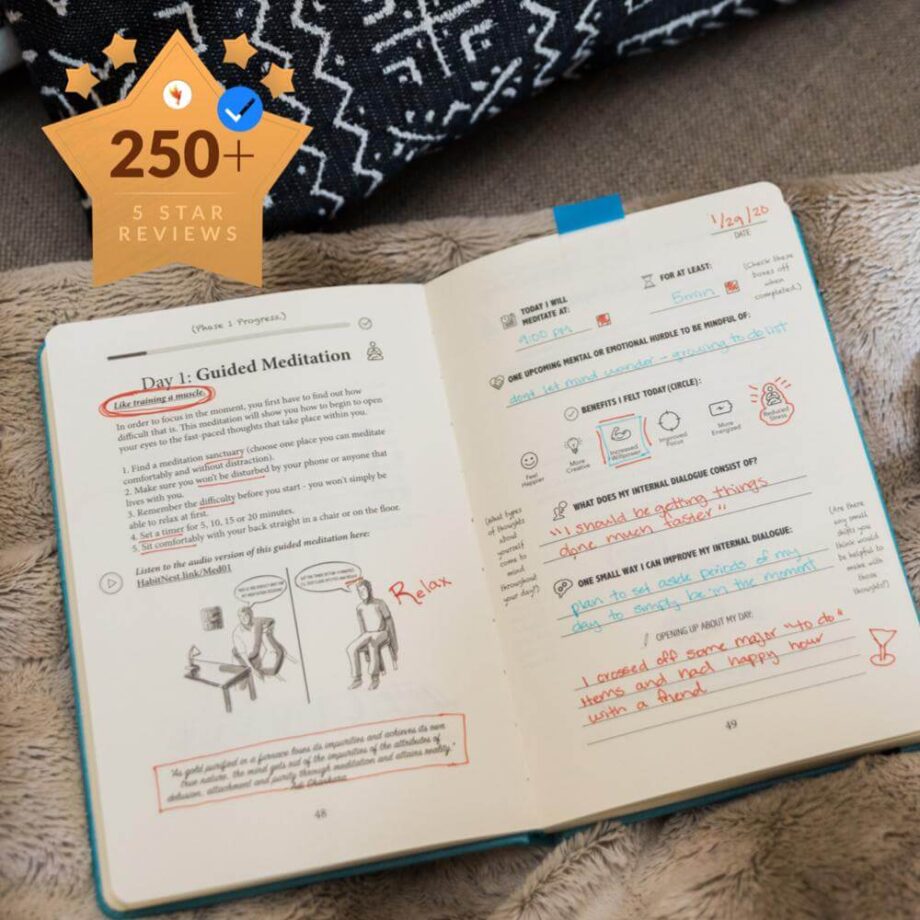 250+
5 STAR
REVIEWS
(Phase 1 Progress.)
Day 1: Guided Meditation
Like training a muscle.
In order to focus in the moment, you first have to find out how
difficult that is. This meditation will show you how to begin to open
your eyes to the fast-paced thoughts that take place within you.
1. Find a meditation sanctuary (choose one place you can meditate
comfortably and without distraction).
2. Make sure you won't be disturbed by your phone or anyone that
lives with you.
3. Remember the difficulty before you start - you won't simply be
able to relax at first.
4. Set a timer for 5, 10, 15 or 20 minutes.
5. Sit comfortably with your back straight in a chair or on the floor.
Listen to the audio version of this guided meditation here:
HabitNest.link/Med01
Relax
"As gold purified in a furnace loses its impurities and achieves its own
true nature, the mind gets rid of the impurities of the attributes of
delusion, attachment and purity through meditation and attains reality."
48
1/29/20
DATE
TODAY I WILL
MEDITATE AT:
9:00 PM
FOR AT LEAST:
5min
(Check these
boxes off
when
completed.)
ONE UPCOMING MENTAL OR EMOTIONAL HURDLE TO BE MINDFUL OF:
dont let mind wander - growing to do list
BENEFITS I FELT TODAY (CIRCLE):
Feel
Happier
More
Creative
Increased
Willpower
Improved
Focus
More
Energized
Reduced
Stress
WHAT DOES MY INTERNAL DIALOGUE CONSIST OF?
"I should be getting things
done much faster"
(What types
of thoughts
about
yourself
come to
mind
throughout
your day?)
ONE SMALL WAY I CAN IMPROVE MY INTERNAL DIALOGUE:
plan to set aside periods of my
day to simply be in the moment
(Are there
any small
shifts you
think would
be helpful to
make with
those
thoughts?)
OPENING UP ABOUT MY DAY:
I crossed off some major "to do"
items and had happy hour
with a friend
49